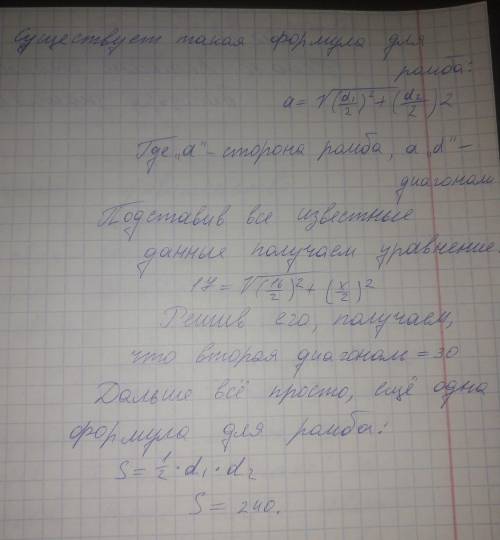 Существует такая формула для
ромба:
a = √(d₁/2)² + (d₂/2)2
Где „a" – сторона ромба, а „d" –
диагонали
Подставив все известные
данные получаем уравнение:
17 = √(16/2)² + (x/2)²
Решив его, получаем,
что вторая диагонали = 30
Дальше всё просто, ещё одна
формула для ромба:
S = 1/2 · d₁ · d₂
S = 240.